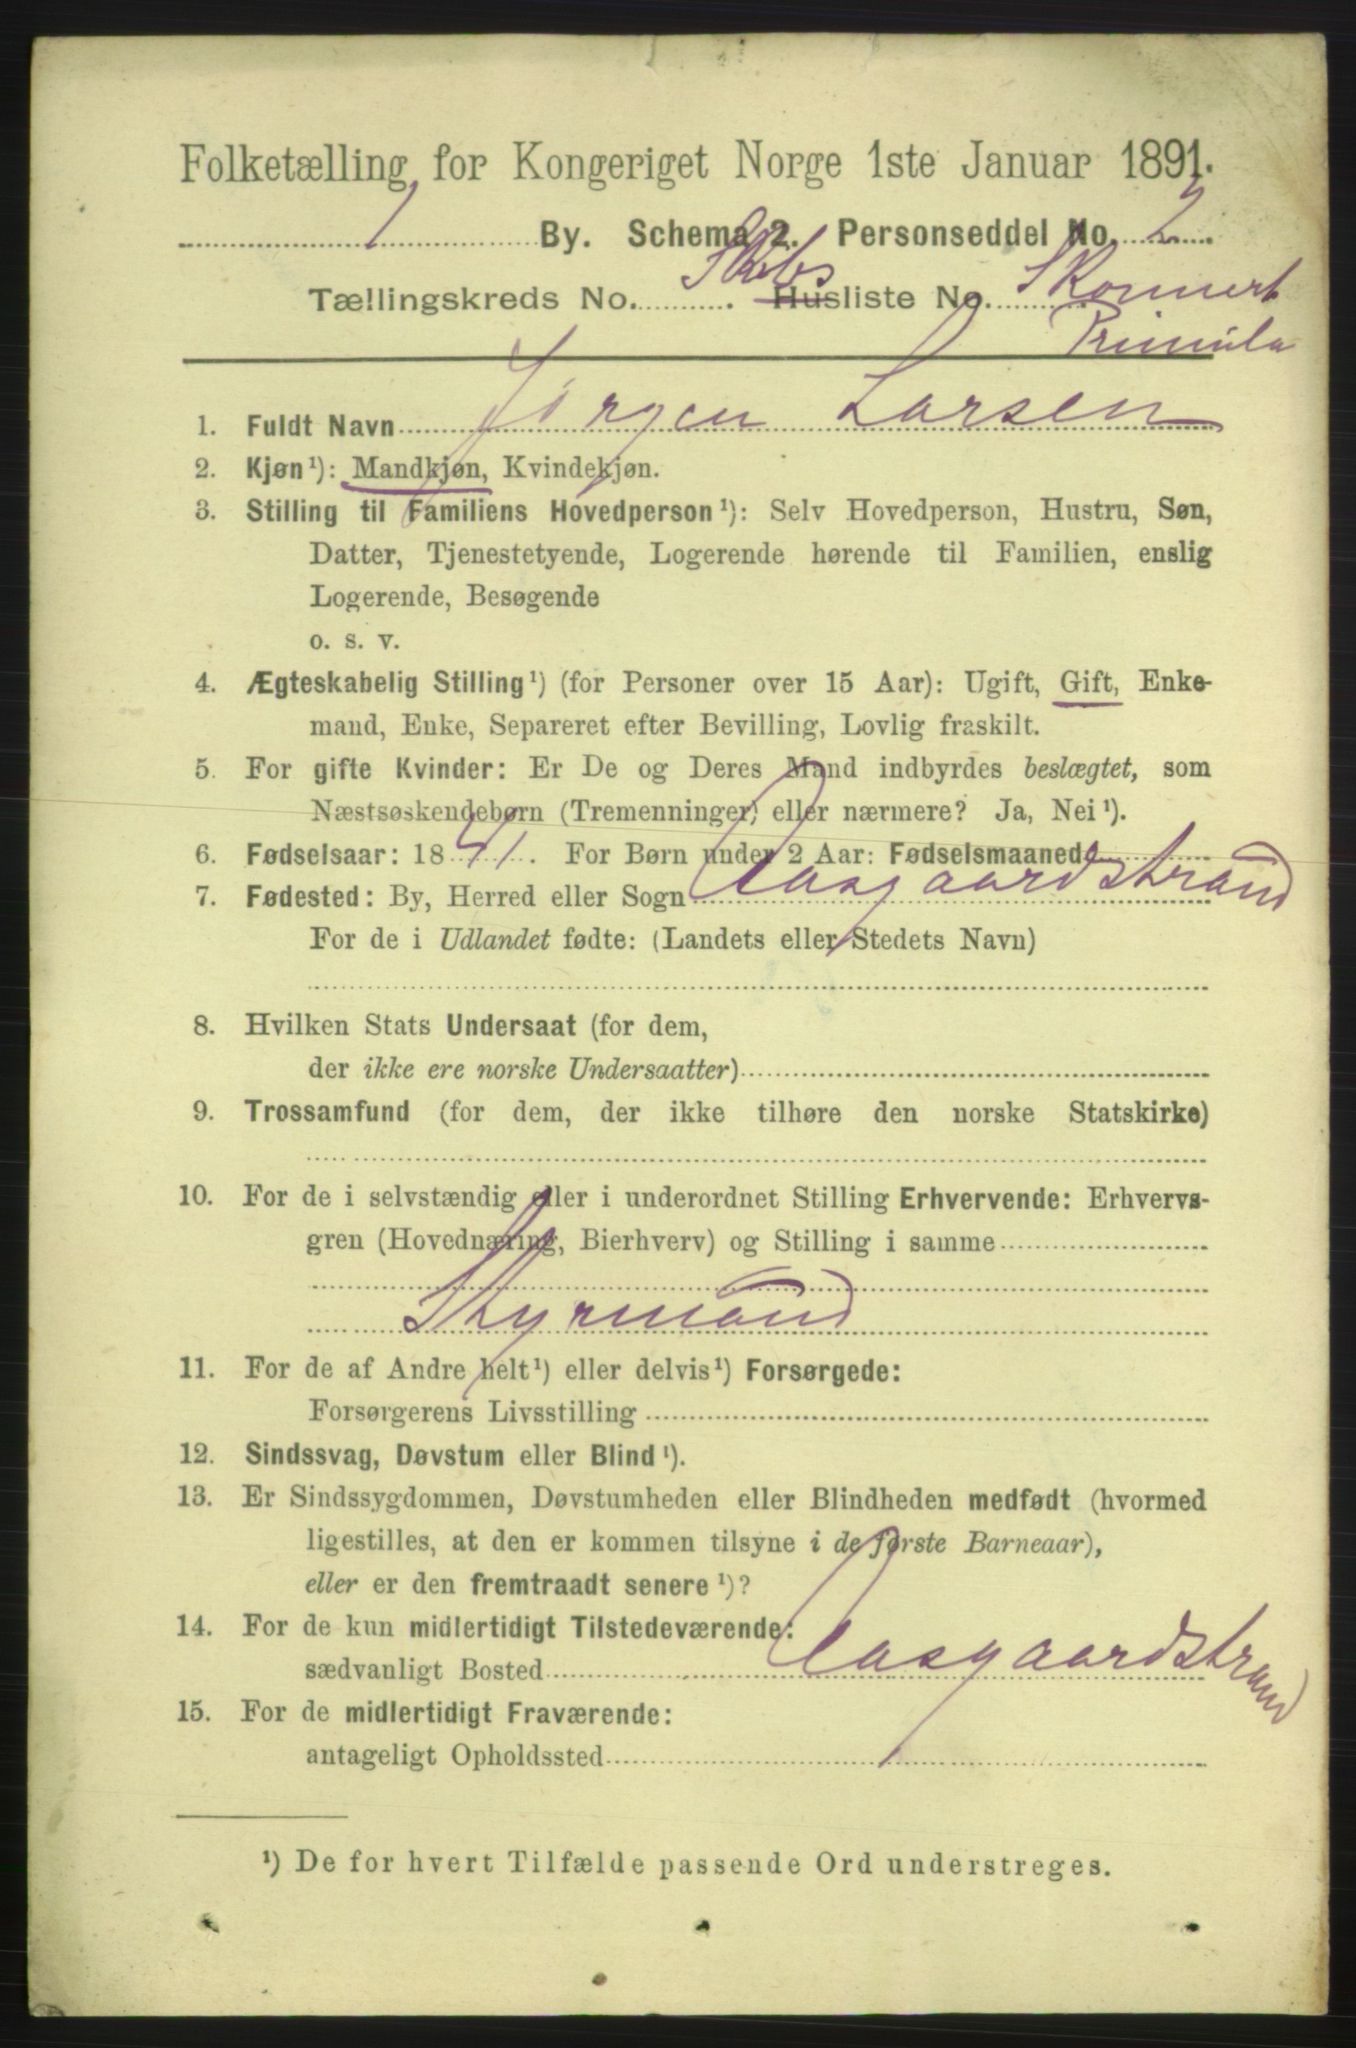 Folketælling for Kongeriget Norge 1ste Januar 1891.
By. Schema 2. Personseddel No. 2
Tællingskreds No. . Skibs Husliste No. Skonnert
Primula
1. Fuldt Navn Jørgen Larsen
2. Kjøn¹): Mandkjøn, Kvindekjøn.
3. Stilling til Familiens Hovedperson¹): Selv Hovedperson, Hustru, Søn,
Datter, Tjenestetyende, Logerende hørende til Familien, enslig
Logerende, Besøgende
o. s. v.
4. Ægteskabelig Stilling¹) (for Personer over 15 Aar): Ugift, Gift, Enke-
mand, Enke, Separeret efter Bevilling, Lovlig fraskilt.
5. For gifte Kvinder: Er De og Deres Mand indbyrdes beslægtet, som
Næstsøskendebørn (Tremenninger) eller nærmere? Ja, Nei¹).
6. Fødselsaar: 1841. For Børn under 2 Aar: Fødselsmaaned
7. Fødested: By, Herred eller Sogn Aasgaardstrand
For de i Udlandet fødte: (Landets eller Stedets Navn)
8. Hvilken Stats Undersaat (for dem,
der ikke ere norske Undersaatter)
9. Trossamfund (for dem, der ikke tilhøre den norske Statskirke)
10. For de i selvstændig eller i underordnet Stilling Erhvervende: Erhvervs-
gren (Hovednæring, Bierhverv) og Stilling i samme
Styrmand
11. For de af Andre helt¹) eller delvis¹) Forsørgede:
Forsørgerens Livsstilling
12. Sindssvag, Døvstum eller Blind¹).
13. Er Sindssygdommen, Døvstumheden eller Blindheden medfødt (hvormed
ligestilles, at den er kommen tilsyne i de første Barneaar),
eller er den fremtraadt senere¹)?
14. For de kun midlertidigt Tilstedeværende:
sædvanligt Bosted Aasgaardstrand
15. For de midlertidigt Fraværende:
antageligt Opholdssted
¹) De for hvert Tilfælde passende Ord understreges.